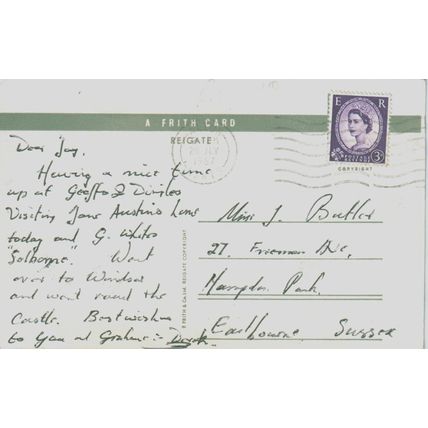 A FRITH CARD
E R
REIGATE
JLY
POSTAGE
3D
COPYRIGHT
Dear Joy,
Having a nice time
up at Geoffs &
Visiting Jane Austins home
today and G. Whites
"Selborne". Went
over to Windsor
and went round the
Castle. Best wishes
to you and Graham :-
© FRITH & CO. LTD. REIGATE COPYRIGHT
Miss J. Butler
27, Freeman Ave,
Hampden Park,
Eastbourne, Sussex